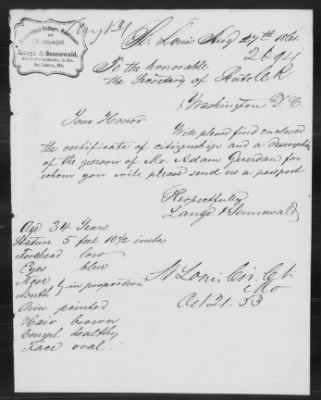 St. Louis Aug 27th 1860
To the honorable
the Secretary of State
Washington D. C.
Your Honor
Will please find enclosed
the certificate of citizenship and a description
of the person of Mr. Adam for
whom you will please send us a passport
Respectfully
Lange & Sennewald
Age 34 Years
Stature 5 feet 10 1/2 inches
Forehead low
Eyes blue
Nose
Mouth } in proportion
Chin pointed
Hair brown
Compl. healthy
Face oral.
St Louis Cir Ct
Mo
Oct 21. 53